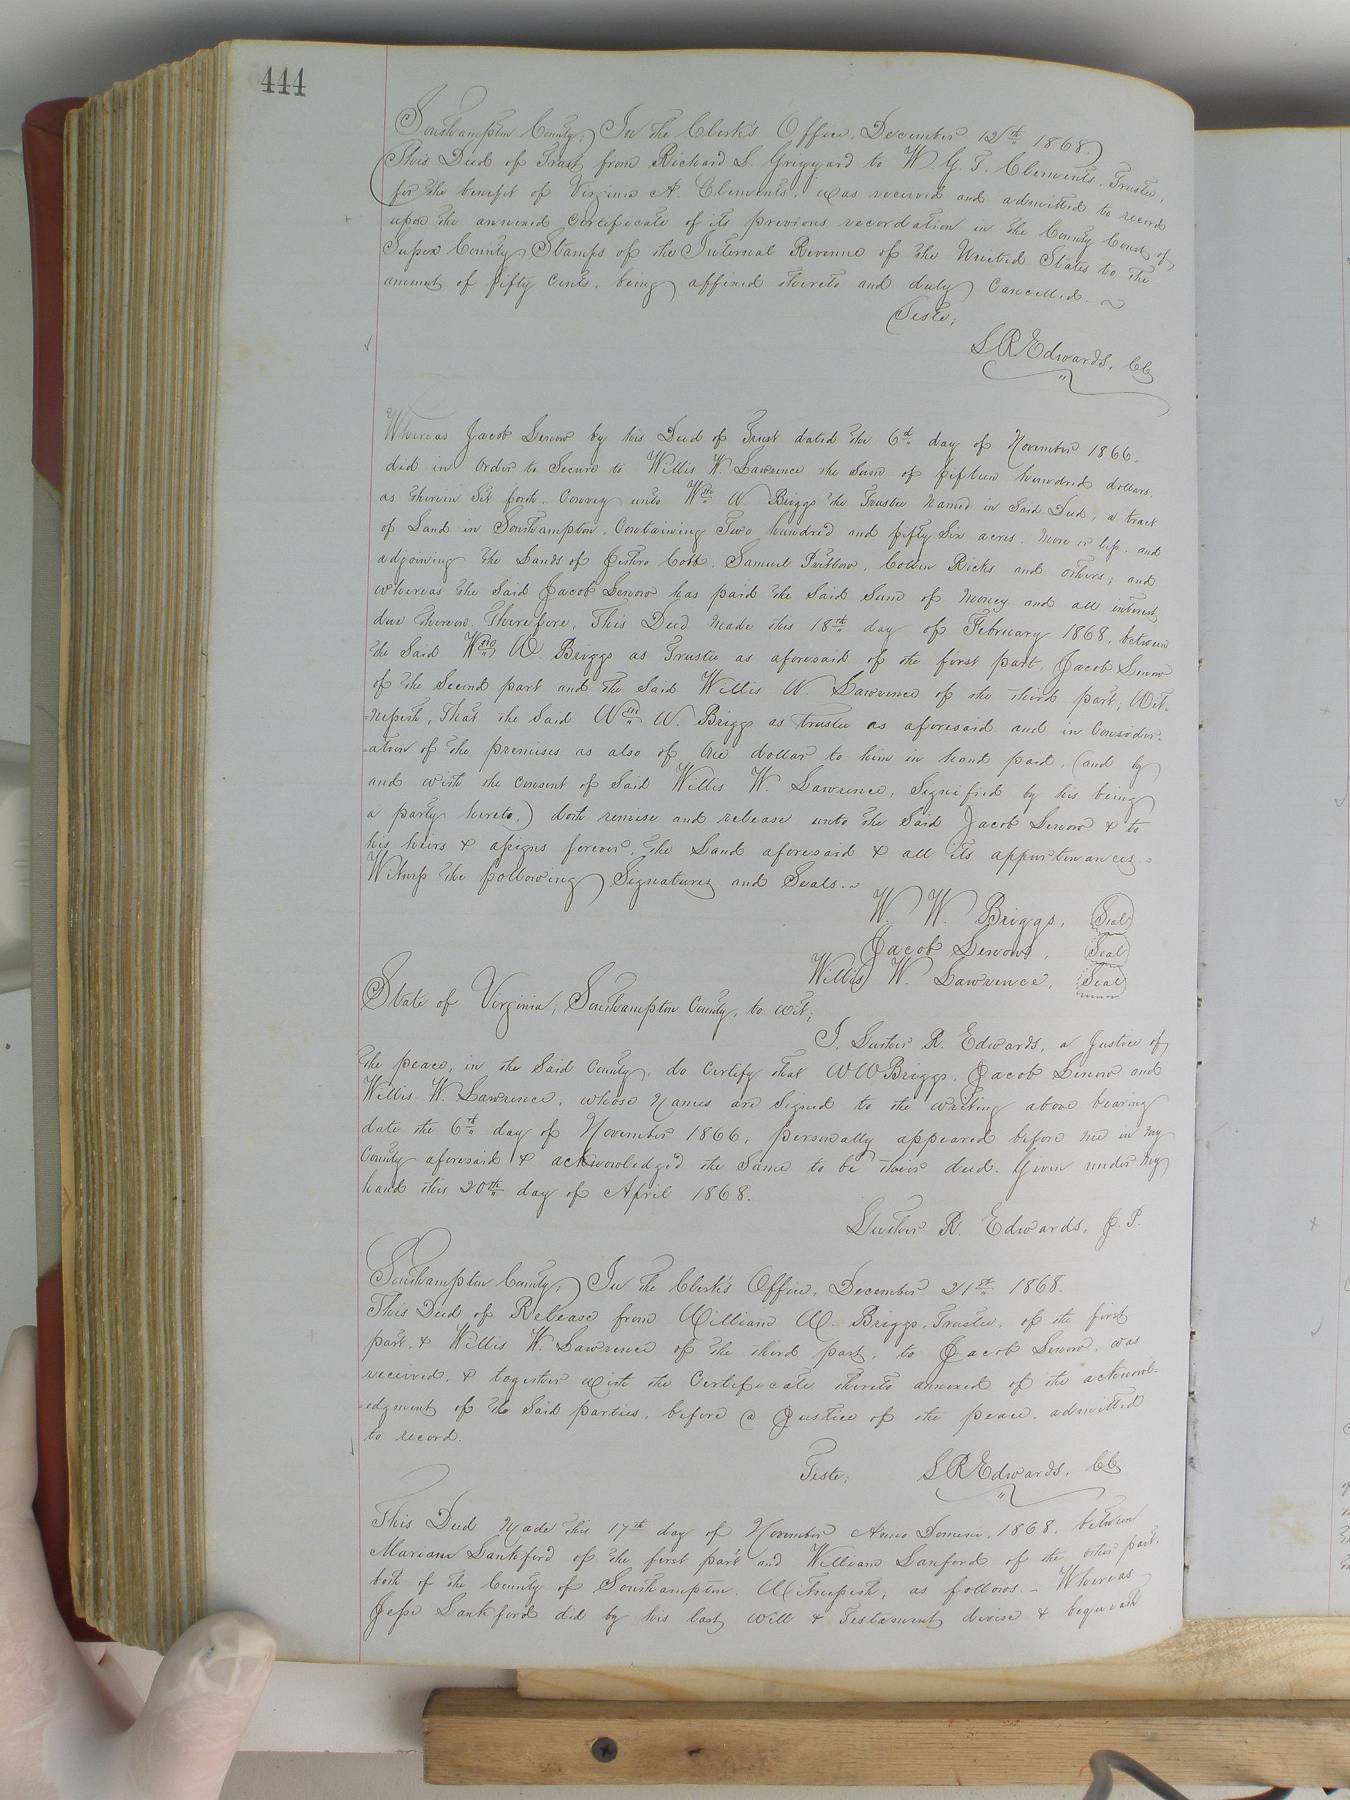 444
Southampton County, In the Clerk's Office, December 12th 1868,
This Deed of Trust from Richard S. Griggard to W. G. T. Clements, Trustee,
for the benefit of Virginia A. Clements, was received and admitted to record
upon the annexed certificate of its previous recordation in the County Court of
Sussex County, Stamps of the Internal Revenue of the United States to the
amount of fifty cents, being affixed thereto and duly Cancelled.
Teste;
L R Edwards, CC
Whereas Jacob by his Deed of Trust dated the 6th day of November 1866
did in Order to Secure to Willis W. Lawrence the Sum of fifteen hundred dollars,
as therein Set forth, Convey unto Wm W Briggs the Trustee Named in Said Deed, a tract
of Land in Southampton, Containing Two hundred and fifty Six acres, more or less, and
adjoining the Lands of Jethro Cobb, Samuel Pretlow, Ricks and others; and
whereas the Said Jacob has paid the Said Sum of Money and all interest
due thereon. Therefore, This Deed Made this 18th day of February 1868, between
the Said Wm W. Briggs as Trustee as aforesaid of the first part, Jacob
of the Second part and the Said Willis W. Lawrence of the third part, Wit-
-nesseth, That the Said Wm W. Briggs as trustee as aforesaid and in Consider-
-ation of the premises as also of One dollar to him in hand paid, (and by
and with the consent of Said Willis W. Lawrence, Signified by his being
a party hereto,) doth remise and release unto the Said Jacob & to
his heirs & assigns forever, the Land aforesaid & all its appurtenances.
Witness the following Signatures and Seals.
W. W. Briggs, Seal
Jacob Seal
Willis W. Lawrence, Seal
State of Virginia; Southampton County, to wit;
I, Luther R. Edwards, a Justice of
the peace, in the Said County, do Certify that W W Briggs, Jacob and
Willis W. Lawrence, whose Names are Signed to the writing above bearing
date the 6th day of November 1866, personally appeared before me in my
County aforesaid & acknowledged the Same to be their deed. Given under my
hand this 20th day of April 1868.
Luther R. Edwards, J. P.
Southampton County, In the Clerk's Office, December 21st 1868.
This Deed of Release from William W. Briggs, Trustee, of the first
part, & Willis W. Lawrence of the third part, to Jacob was
received, & together with the Certificate thereto annexed of the acknowl-
-edgment of the Said parties, before a Justice of the peace, admitted
to record.
Teste; L R Edwards, CC
This Deed Made this 17th day of November Anno Domini, 1868, between
Mariam Lankford of the first part and William Lanford of the other part,
both of the County of Southampton. Witnesseth; as follows. Whereas
Jesse Lankford did by his last Will & Testament devise & bequeath